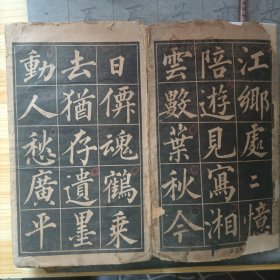 江鄉處〻憶
陪遊見寫湘
雲數葉秋今
日僊魂鶴乘
去猶存遺墨
動人愁廣平